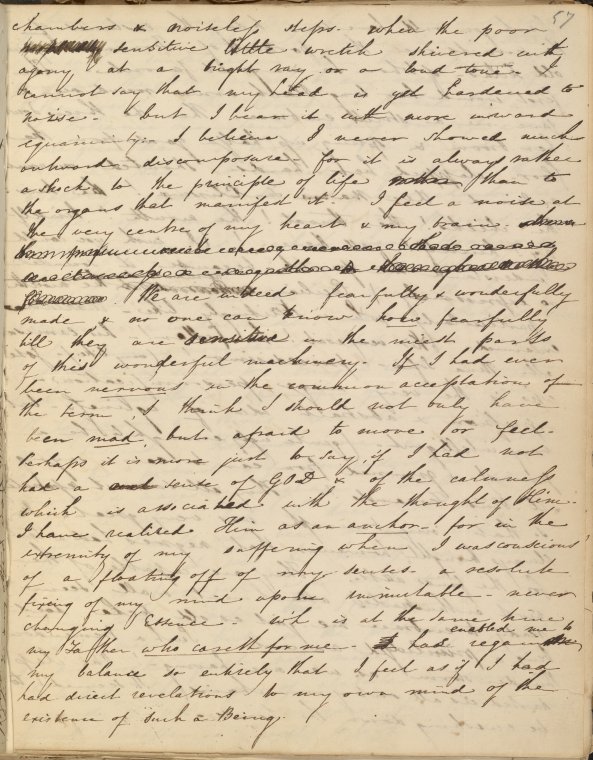 57
chambers & noiseless steps. when the poor
sensitive little wretch shivered with
agony at a bright ray or a loud tone. I
cannot say that my head is yet hardened to
noise. but I bear it with more inward
equanimity. I believe I never showed much
outward discomposure. for it is always rather
a shock to the principle of life than to
the organs that manifest it. I feel a noise at
the very centre of my heart & my brain.
We are indeed fearfully & wonderfully
made & no one can know how fearfully
till they are sensitive in the nicest parts
of this wonderful machinery. If I had ever
been nervous in the common acceptation of
the term I think I should not only have
been mad, but afraid to move or feel.
perhaps it is more just to say, if I had not
had a sense of GOD & of the calmness
which is associated with the thought of Him.
I have realized Him as an anchor. for in the
extremity of my suffering when I was conscious
of a floating off of my senses. a resolute
fixing of my mind upon immutable. never
changing Essence. wh is at the same time
my Father who careth for me. has enabled me to regain
my balance so entirely that I feel as if I had
had direct revelations to my own mind of the
existence of such a Being.